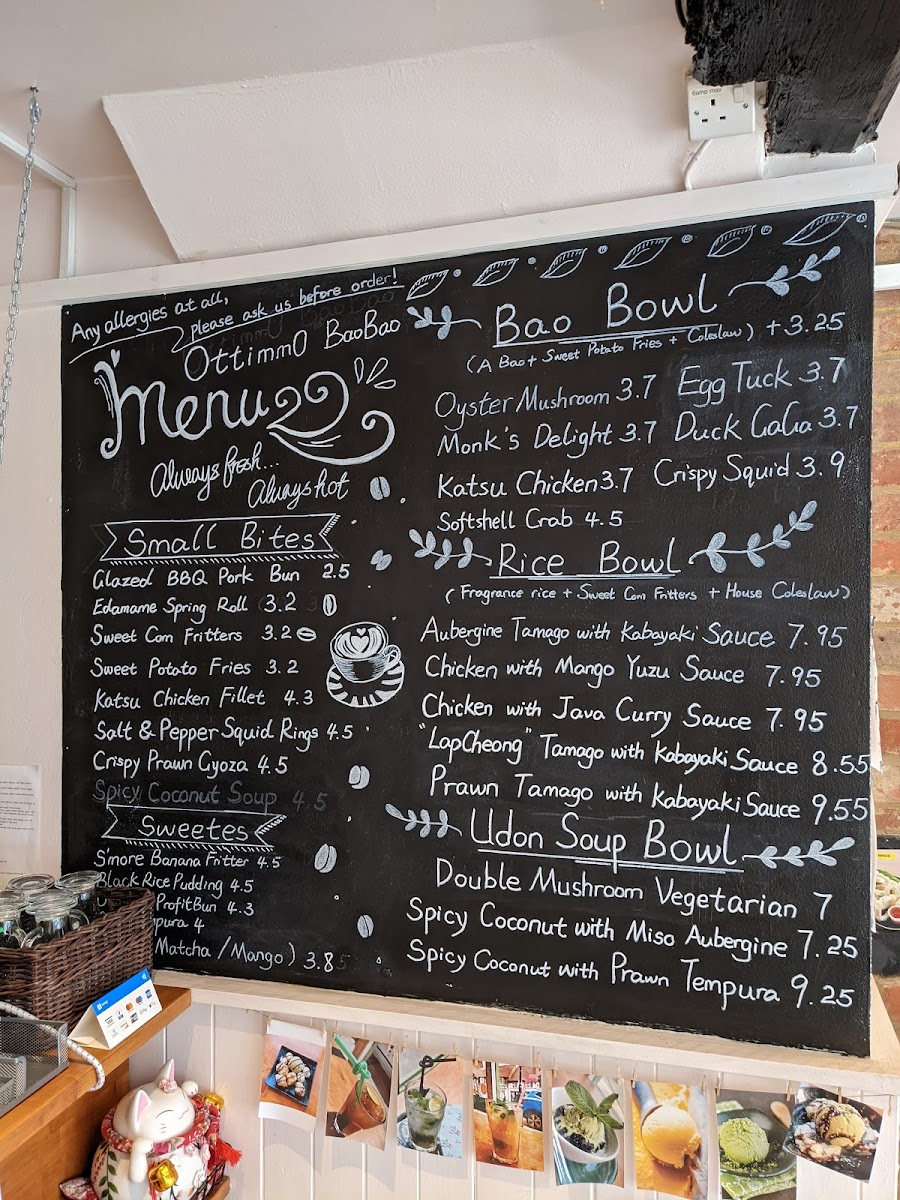 Any allergies at all,
please ask us before order!
OttimmO BaoBao
Menu
Always fresh...
Always hot
Small Bites
Glazed BBQ Pork Bun 2.5
Edamame Spring Roll 3.2
Sweet Corn Fritters 3.2
Sweet Potato Fries 3.2
Katsu Chicken Fillet 4.3
Salt & Pepper Squid Rings 4.5
Crispy Prawn Gyoza 4.5
Spicy Coconut Soup 4.5
Sweetes
S'more Banana Fritter 4.5
Black Rice Pudding 4.5
ProfitBun 4.3
pura 4
Matcha / Mango) 3.8
Bao Bowl
(A Bao + Sweet Potato Fries + Coleslaw) + 3.25
Oyster Mushroom 3.7 Egg Tuck 3.7
Monk's Delight 3.7 Duck GaGa 3.7
Katsu Chicken 3.7 Crispy Squid 3.9
Softshell Crab 4.5
Rice Bowl
(Fragrance rice + Sweet Corn Fritters + House Coleslaw)
Aubergine Tamago with Kabayaki Sauce 7.95
Chicken with Mango Yuzu Sauce 7.95
Chicken with Java Curry Sauce 7.95
"LapCheong" Tamago with Kabayaki Sauce 8.55
Prawn Tamago with Kabayaki Sauce 9.55
Udon Soup Bowl
Double Mushroom Vegetarian 7
Spicy Coconut with Miso Aubergine 7.25
Spicy Coconut with Prawn Tempura 9.25